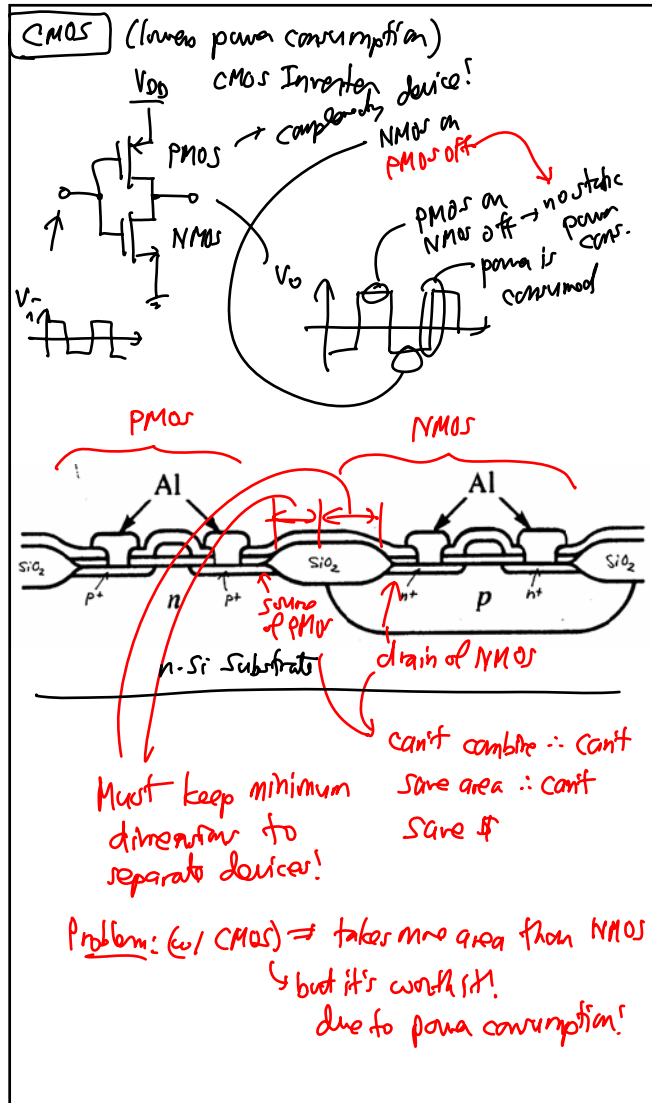 CMOS (lowers power consumption)
CMOS Inverter
VDD
PMOS → complementary device!
NMOS on
PMOS off
PMOS on
NMOS off → no static
power
cons.
NMOS
Vo
power is
consumed
Vi
PMOS
NMOS
Al
Al
SiO2
p+
n
p+
SiO2
n+
p
n+
SiO2
source
of PMOS
n-Si Substrate
drain of NMOS
can't combine ∴ can't
save area ∴ can't
save $
Must keep minimum
dimension to
separate devices!
Problem: (w/ CMOS) ⇒ takes more area than NMOS
but it's worth it!
due to power consumption!